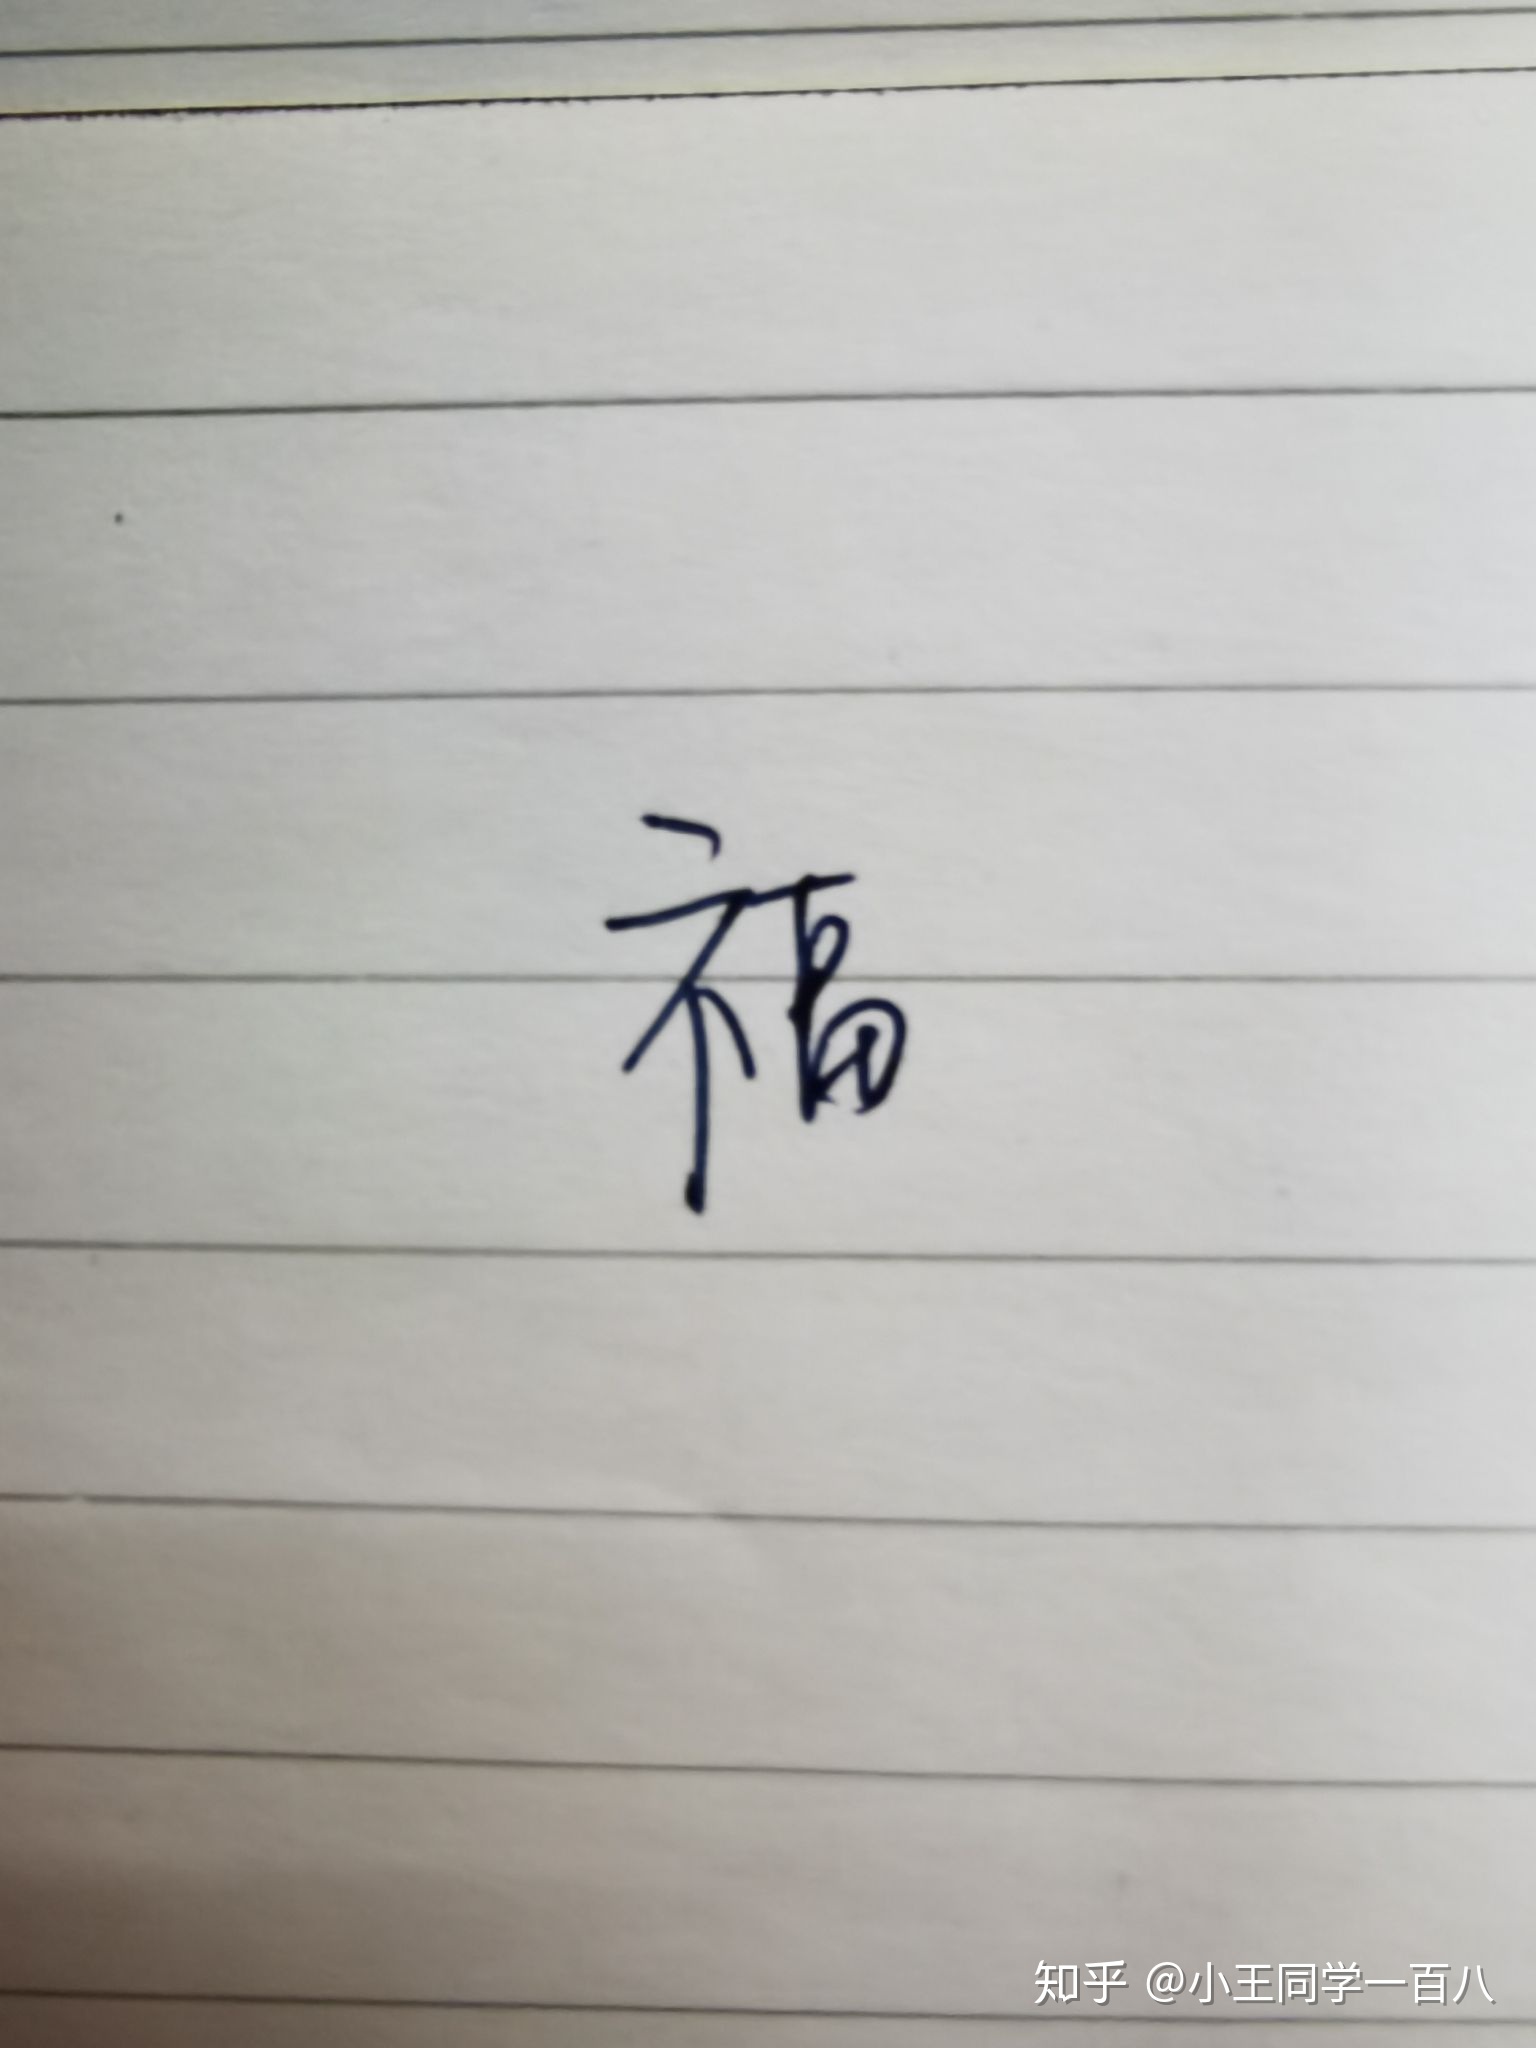 福
知乎 @小王同学一百八